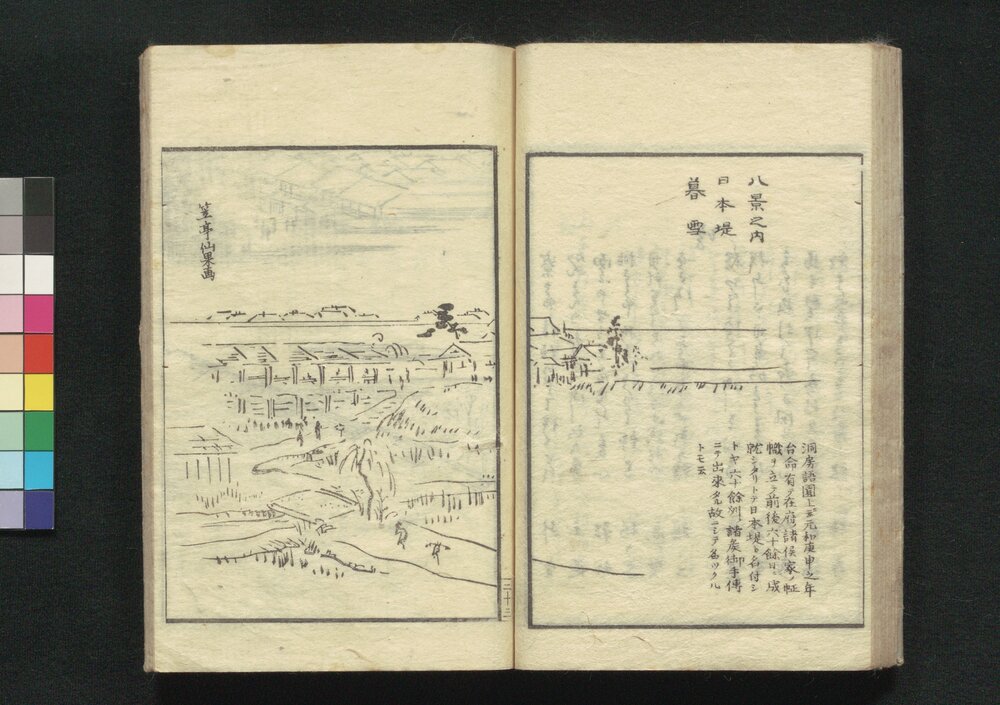 八景之内
日本堤
暮雪
洞房語園ニ云元和庚申之年
台命有テ在府諸侯家ノ
幟ヲ立テ前後六十餘日ニ成
就シタリトテ日本堤ト名付シ
トヤ六十餘列ノ諸侯御手傳
ニテ出来タル故ニシテ名ツクル
トモ云
笠亭仙果画
三十三